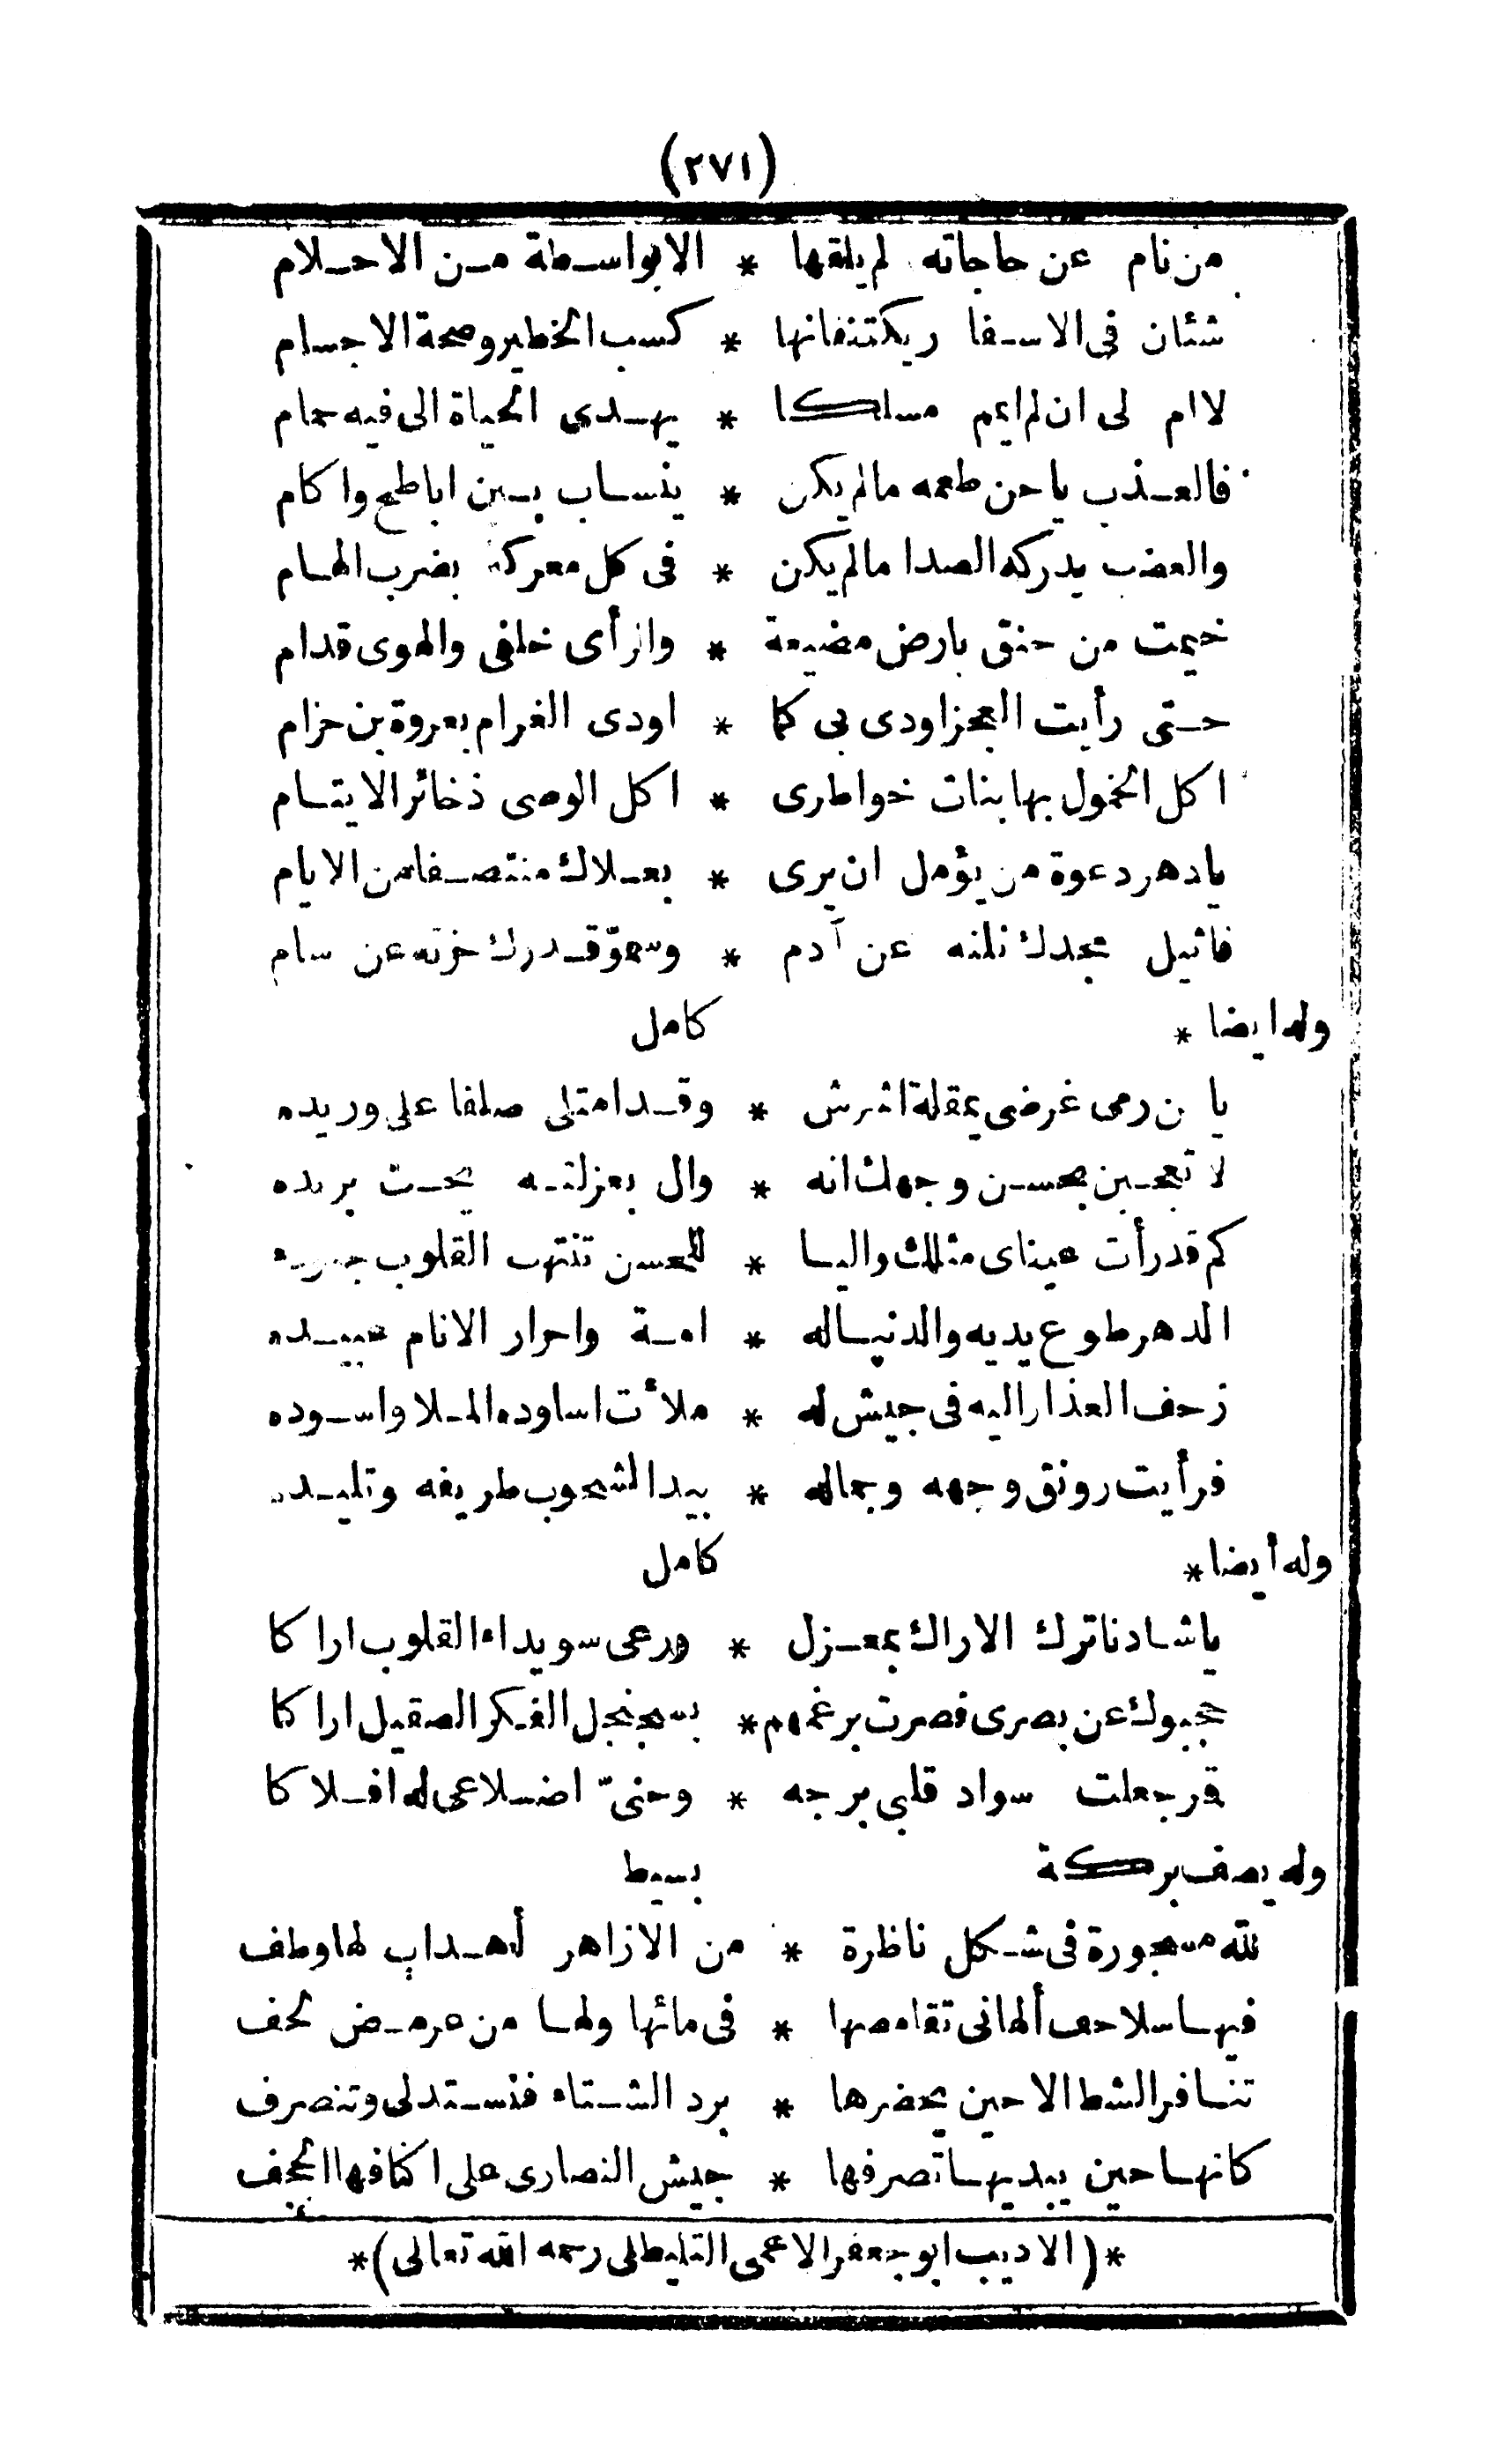 (٢٧١)
من نام عن حاجاته لم يلقها * الا بواسطة من الاحلام
شئان فى الاسفار يكتنفانها * كسب الخطير وصحة الاجسام
لا ام لى ان لم ايمم مسلكا * يهدى الحياة الى فيه حمام
فالعذب ياحن طعمه مالم يكن * ينساب بين اباطح واكام
والعضب يدركه الصدا مالم يكن * فى كل معركة بضرب الهام
خيمت من حنق بارض مضيعة * والرأى خلفى والهوى قدام
حتى رأيت العجز اودى بى كما * اودى الغرام بعروة بن حزام
اكل الخمول بها بنات خواطرى * اكل الوصى ذخائر الايتام
يادهر دعوة من يؤمل ان يرى * بعلاك منتصفا من الايام
فاثيل مجدك نلته عن آدم * وسموّ قدرك حزته عن سام
وله ايضا * كامل
يا من رمى غرضى بمقلة اشرش * وقد امتلى صلفا على وريده
لا تعجبن بحسن وجهك انه * وال بعزلته يحث بريده
كم قد رأت عيناى مثلك واليا * للحسن تنتهب القلوب
الدهر طوع يديه والدنيا له * امة واحرار الانام عبيده
زحف العذار اليه فى جيش له * ملأت اساوده الملا واسوده
فرأيت رونق وجهه وجماله * بيد الشحوب طريفه وتليده
وله أيضا * كامل
ياشادنا ترك الاراك بمعزل * ورعى سويداء القلوب اراكا
حجبوك عن بصرى فصرت برغمهم * بسجنجل الفكر الصقيل اراكا
قر جعلت سواد قلبى برجه * وحنىّ اضلاعى له افلاكا
وله يصف بركة بسيط
لله مسجورة فى شكل ناظرة * من الازاهر أهداب لها وطف
فيها سلاحف ألهانى تقامصها * فى مائها ولها من عرمض لحف
تنافر الشط الا حين يحضرها * برد الشتاء فتستدلى وتنصرف
كانها حين يبديها تصرفها * جيش النصارى على اكتافها الحجف
*(الاديب ابو جعفر الاعمى التليطلى رحمه الله تعالى)*